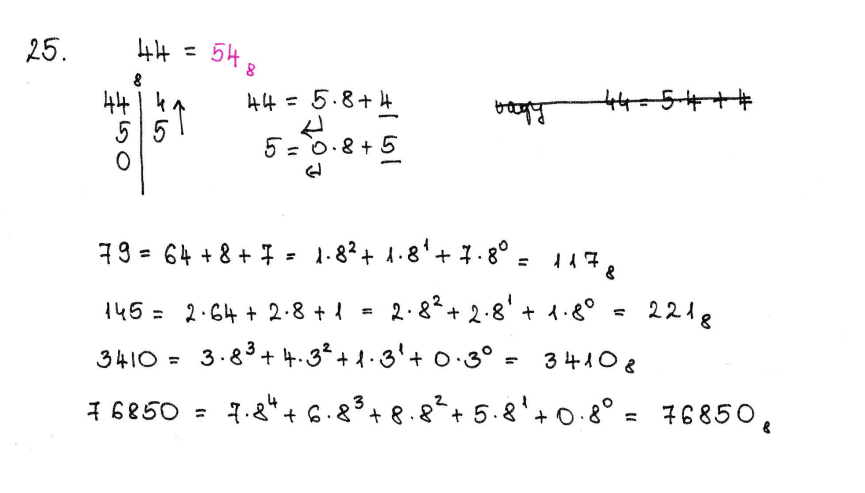 25. 44 = 54₈
8
44 | 4
5 | 5
0 |
44 = 5·8+4
5 = 0·8+5
vagy 44 = 5·4 + 4
79 = 64 + 8 + 7 = 1·8² + 1·8¹ + 7·8⁰ = 117₈
145 = 2·64 + 2·8 + 1 = 2·8² + 2·8¹ + 1·8⁰ = 221₈
3410 = 3·8³ + 4·3² + 1·3¹ + 0·3⁰ = 3410₈
76850 = 7·8⁴ + 6·8³ + 8·8² + 5·8¹ + 0·8⁰ = 76850₈